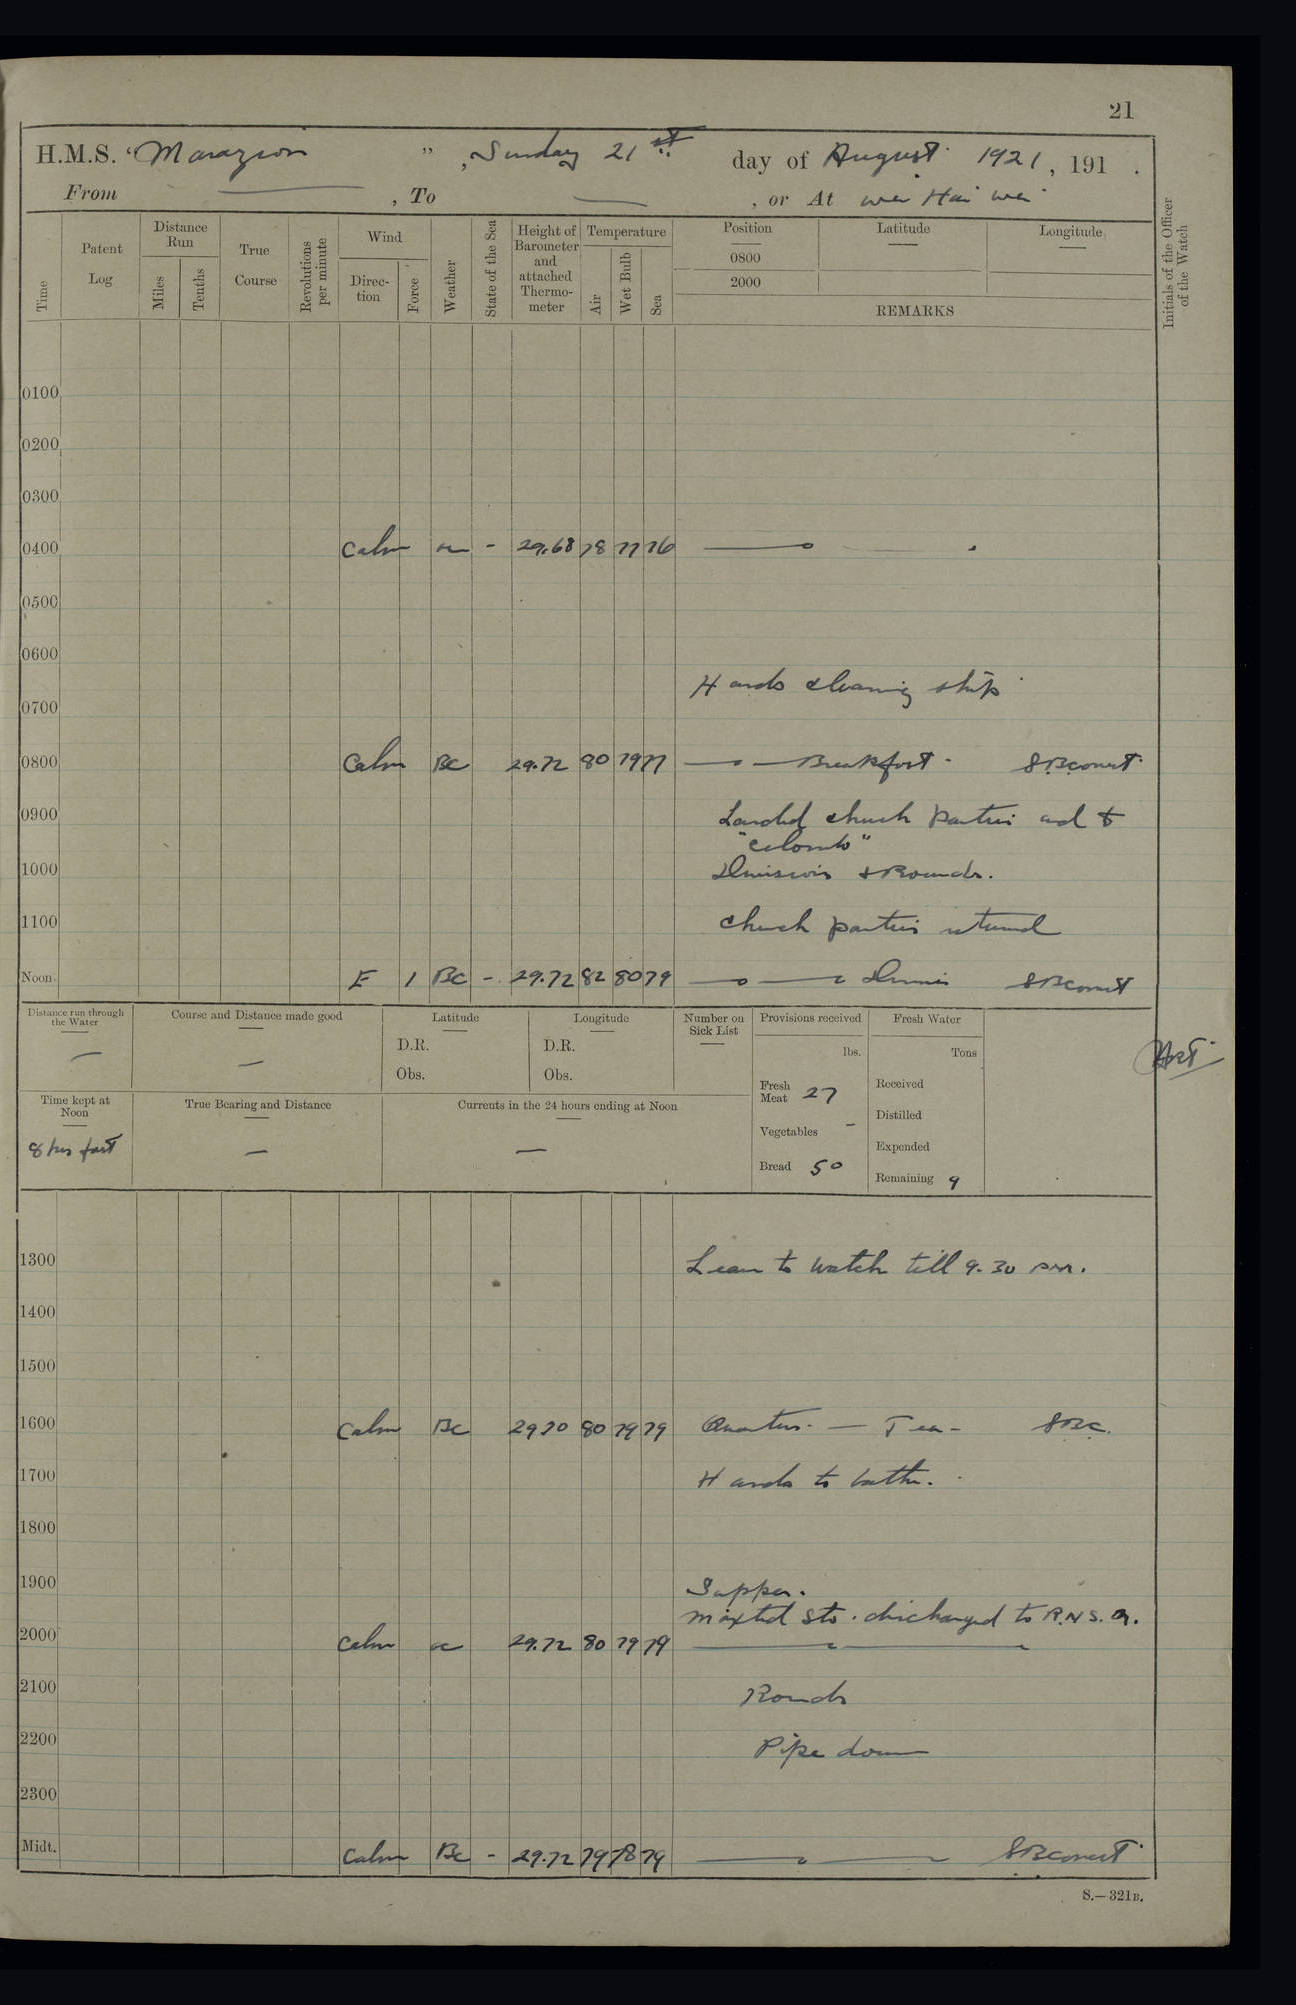 21
H.M.S. "Marazion", Sunday 21st day of August 1921, 191 .
From — , To — , or At Wei Hai Wei
Time
Patent Log
Distance Run
Miles
Tenths
True Course
Revolutions per minute
Wind
Direction
Force
Weather
State of the Sea
Height of Barometer and attached Thermometer
Temperature
Air
Wet Bulb
Sea
Position
0800
2000
Latitude
Longitude
REMARKS
Initials of the Officer of the Watch
0100
0200
0300
0400 Calm - 29.68 78 77 76
0500
0600
Hands cleaning ship
0700
0800 Calm BC 29.72 80 79 77 — Breakfast -
0900 Landed church parties and to
"Colombo"
1000 Divisions & Rounds.
1100 Church parties returned
Noon E 1 BC - 29.72 82 80 79 — Dinner
Distance run through the Water
—
Course and Distance made good
—
Latitude
D.R.
Obs.
Longitude
D.R.
Obs.
Number on Sick List
Provisions received
lbs.
Fresh Meat 27
Vegetables -
Bread 50
Fresh Water
Tons
Received
Distilled
Expended
Remaining 9
Time kept at Noon
8 hrs fast
True Bearing and Distance
—
Currents in the 24 hours ending at Noon
—
1300 Leave to watch till 9.30 pm.
1400
1500
1600 Calm BC 29.70 80 79 79 Quarters. — Tea - SBC.
1700 Hands to bathe.
1800
1900 Supper.
Sto. discharged to R.N.S.Q.
2000 Calm 29.72 80 79 79
2100 Rounds
2200 Pipe down
2300
Midt. Calm BC - 29.72 79 78 79
S.—321B.